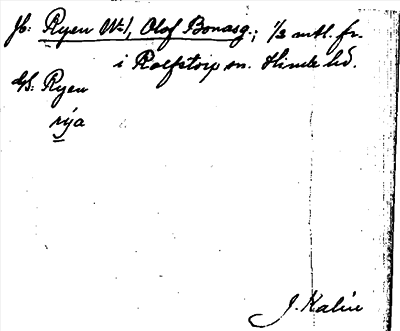 Jb: Ryen No 1, Olof Bonasg.; 1/3 mtl. fr.
i Rolfstorp sn. Himle hd.
Gs: Ryen
rya
J. Kalén